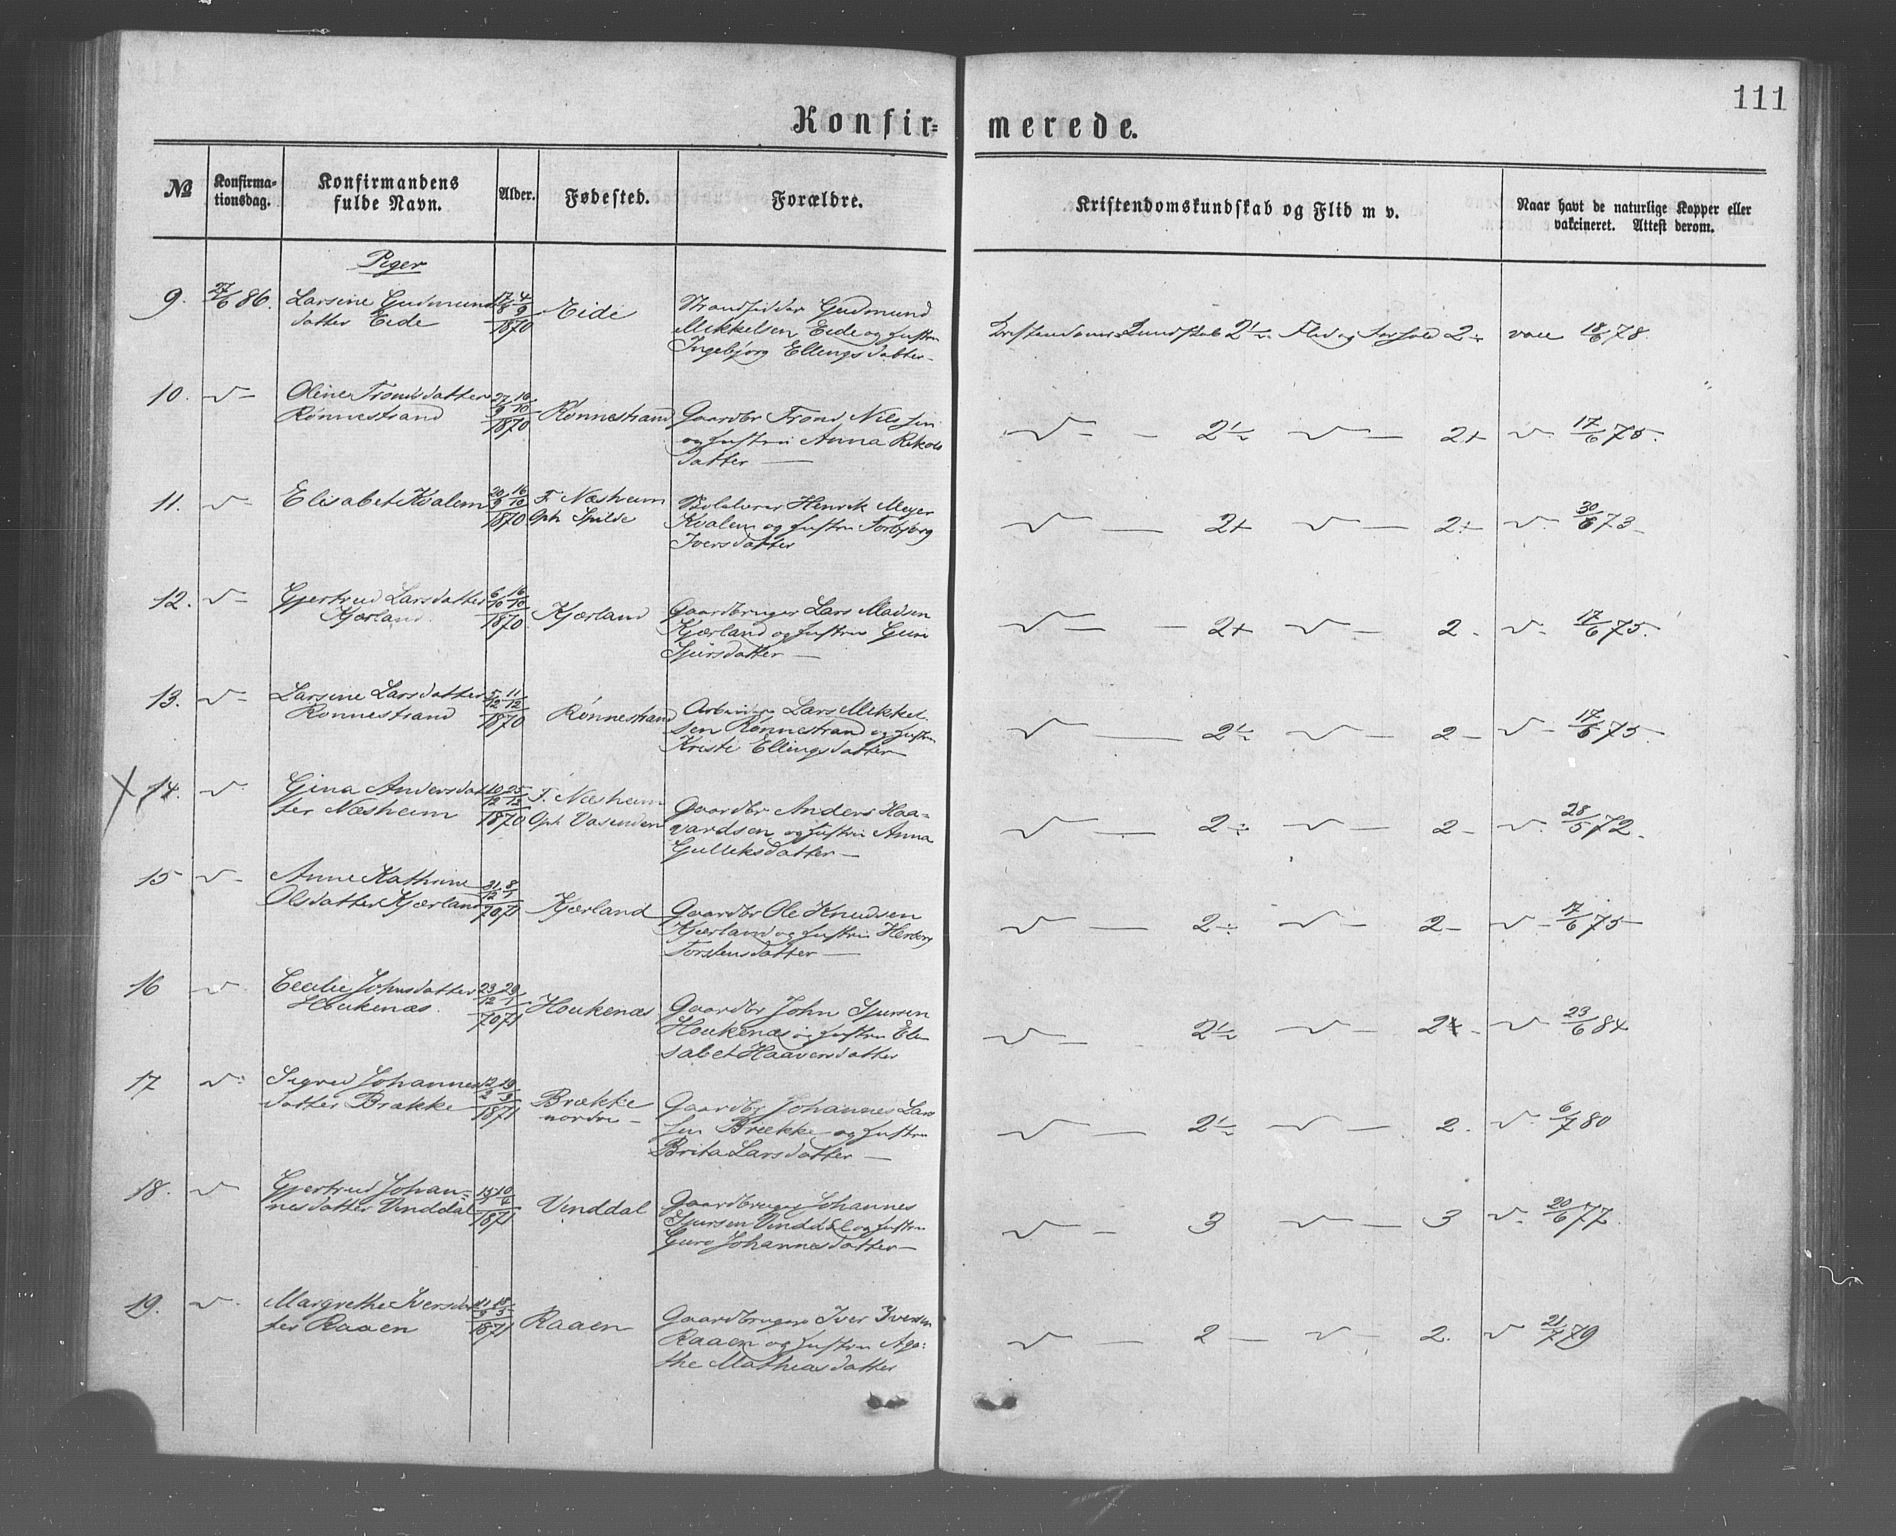 111
Konfir=merede.
№ Konfirma-tionsdag. Konfirmandens fulde Navn. Alder. Fødested. Forældre. Kristendomskundskab og Flid m v. Naar havt de naturlige Kopper eller vakcineret. Attest derom.
Piger
9. 27/6 86. Larsine Gudmunds 17/8 4/9 1870 Eide Strandsidder Gudmund
datter Eide Mikkelsen Eide og hustru
Ingebjørg Ellingsdatter Kristendomskundskab 2½ Flid og Forhold 2÷ vacc 18/6 78.
10. v – Oline Tronds datter 27/9 16/10 1870 Rønnestrand Gaardbr Trond Nilssen
Rønnestrand og hustru Anna
datter – v – 2½ v – 2+ v. 17/6 75.
11. v – Elisabet Kvalem 20/9 16/10 1870 F. Næsheim
Oph Spilde Henrik Meyer
Kvalem og hustru Torbjørg
Iversdatter v – 2+ v – 2+ v. 30/6 73
12. v – Gjertrud Larsdatter 6/10 16/10 1870. Kjærland Gaardbruger Lars Madsen
Kjærland. Kjærland og hustru Guri
Sjursdatter – v – 2+ v – 2. v. 17/6 75.
13. v – Larsine Larsdatter 5/12 11/12 1870 Rønnestrand Arbeider Lars Mikkel
Rønnestrand sen Rønnestrand og hustru
Kristi Ellingsdatter v – 2½ v – 2 – v – 17/6 75.
X 14. v. Gina Andersdat 10/12 25/12 1870 F. Næsheim
ter Næsheim Oph Vasenden Gaardbr Anders Haa-
vardsen og hustru Anna
Gulleksdatter – v – 2÷ v – 2 – v. 28/5 72.
15 v – Anne Kathrine 31/12 8/1 70 71 Kjærland Gaardbr Ole Knudsen
Olsdatter Kjærland Kjærland og hustru
Torstensdatter – v – 2÷ v – 2 – v – 17/6 75
16 v Cecilie Johnsdatter 23/12 29/1 70 71 Houkenæs Gaardbr John Sjursen
Houkenæs. Houkenæs og hustru Eli
sabet Haaversdatter v – 2½ v – 2 – v – 23/6 84
17 v. Sigrid Johannes 12/2 19/3 1871 Brække
datter Brække nordre – Gaardbr Johannes Lars
sen Brække og hustru
Brita Larsdatter – v – 2½ v – 2. v. 6/7 80
18. v Gjertrud Johan= 15/10 1871 Vinddal Gaardbruger Johannes
nesdatter Vinddal Sjursen Vinddal og hustru
Guro Johannesdatter – v – 3 v – 3 v. 20/6 77.
19. v. Margrethe Iversdat 1871 Raaen Gaardbruger Iver Iversen
ter Raaen Raaen og hustru Aga=
the Mathiasdatter v – 2 – v – 2. v 21/7 79